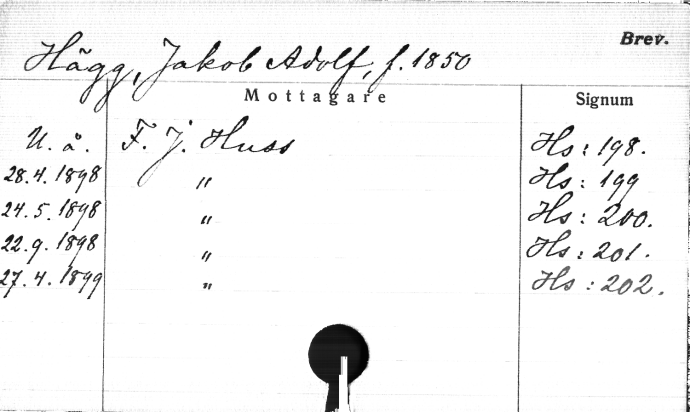 Brev.
Hägg, Jakob Adolf, f. 1850
Mottagare Signum
U. å. F. J. Huss Hs: 198.
28.4. 1898 " Hs: 199
24.5. 1898 " Hs: 200.
22.9. 1898 " Hs: 201.
27.4. 1899 " Hs: 202.